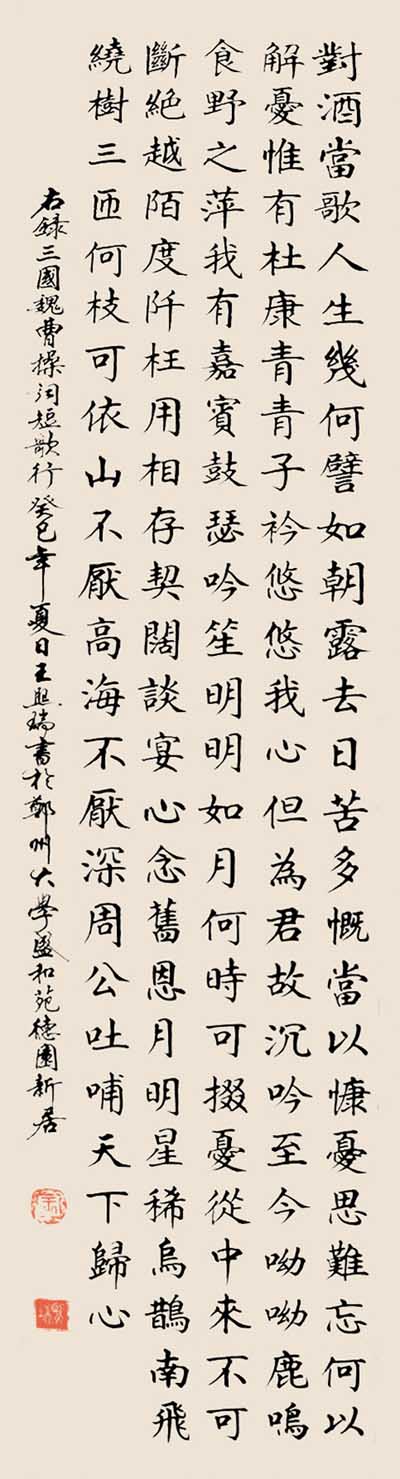 對酒當歌人生幾何譬如朝露去日苦多慨當以慷憂思難忘何以
解憂惟有杜康青青子衿悠悠我心但為君故沉吟至今呦呦鹿鳴
食野之萍我有嘉賓鼓瑟吟笙明明如月何時可掇憂從中來不可
斷絕越陌度阡枉用相存契闊談宴心念舊恩月明星稀烏鵲南飛
繞樹三匝何枝可依山不厭高海不厭深周公吐哺天下歸心
右錄三國魏曹操詞短歌行癸巳年夏日王熙瑞書於鄭州大學盛和苑德園新居